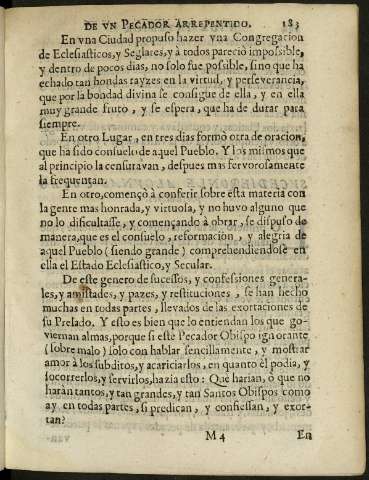 DE VN PECADOR ARREPENTIDO. 183
En vna Ciudad propuso hazer vna Congregacion
de Eclesiasticos, y Seglares, y à todos pareciò impossible,
y dentro de pocos dias, no solo fue possible, sino que ha
echado tan hondas rayzes en la virtud, y perseverancia,
que por la bondad divina se consigue de ella, y en ella
muy grande fruto, y se espera, que ha de durar para
siempre.
En otro Lugar, en tres dias formò otra de oracion,
que ha sido consuelo de aquel Pueblo. Y los mismos que
al principio la censuravan, despues mas fervorosamente
la frequentan.
En otro, començò à conferir sobre esta materia con
la gente mas honrada, y virtuosa, y no huvo alguno que
no lo dificultasse, y començando à obrar, se dispuso de
manera, que es el consuelo, reformacion, y alegria de
aquel Pueblo (siendo grande) comprehendiendose en
ella el Estado Eclesiastico, y Secular.
De este genero de sucessos, y confessiones genera-
les, y amistades, y pazes, y restituciones, se han hecho
muchas en todas partes, llevados de las exortaciones de
su Prelado. Y esto es bien que lo entiendan los que go-
viernan almas, porque si este Pecador Obispo ignorante
(sobre malo) solo con hablar sencillamente, y mostrar
amor à los subditos, y acariciarlos, en quanto èl podia, y
socorrerlos, y servirlos, hazia esto: Què harian, ò que no
haràn tantos, y tan grandes, y tan Santos Obispos como
ay en todas partes, si predican, y confiessan, y exor-
tan?
M 4 En